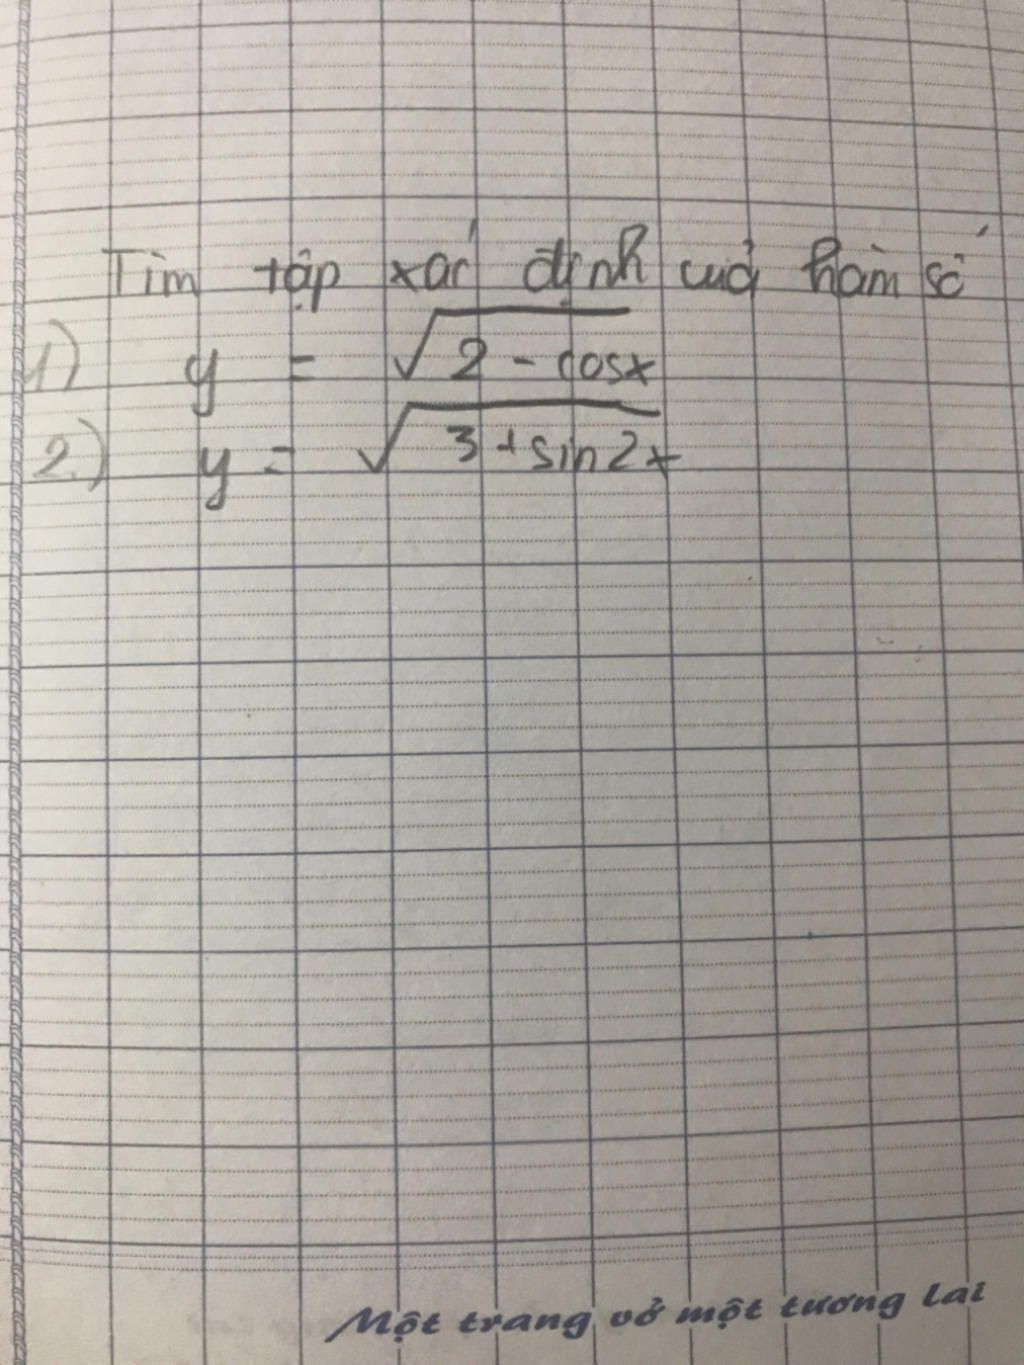 Tìm tập xác định cuả hàm số
1) y = √2 - cosx
2) y = √3 + sin2x
Một trang vở một tương lai